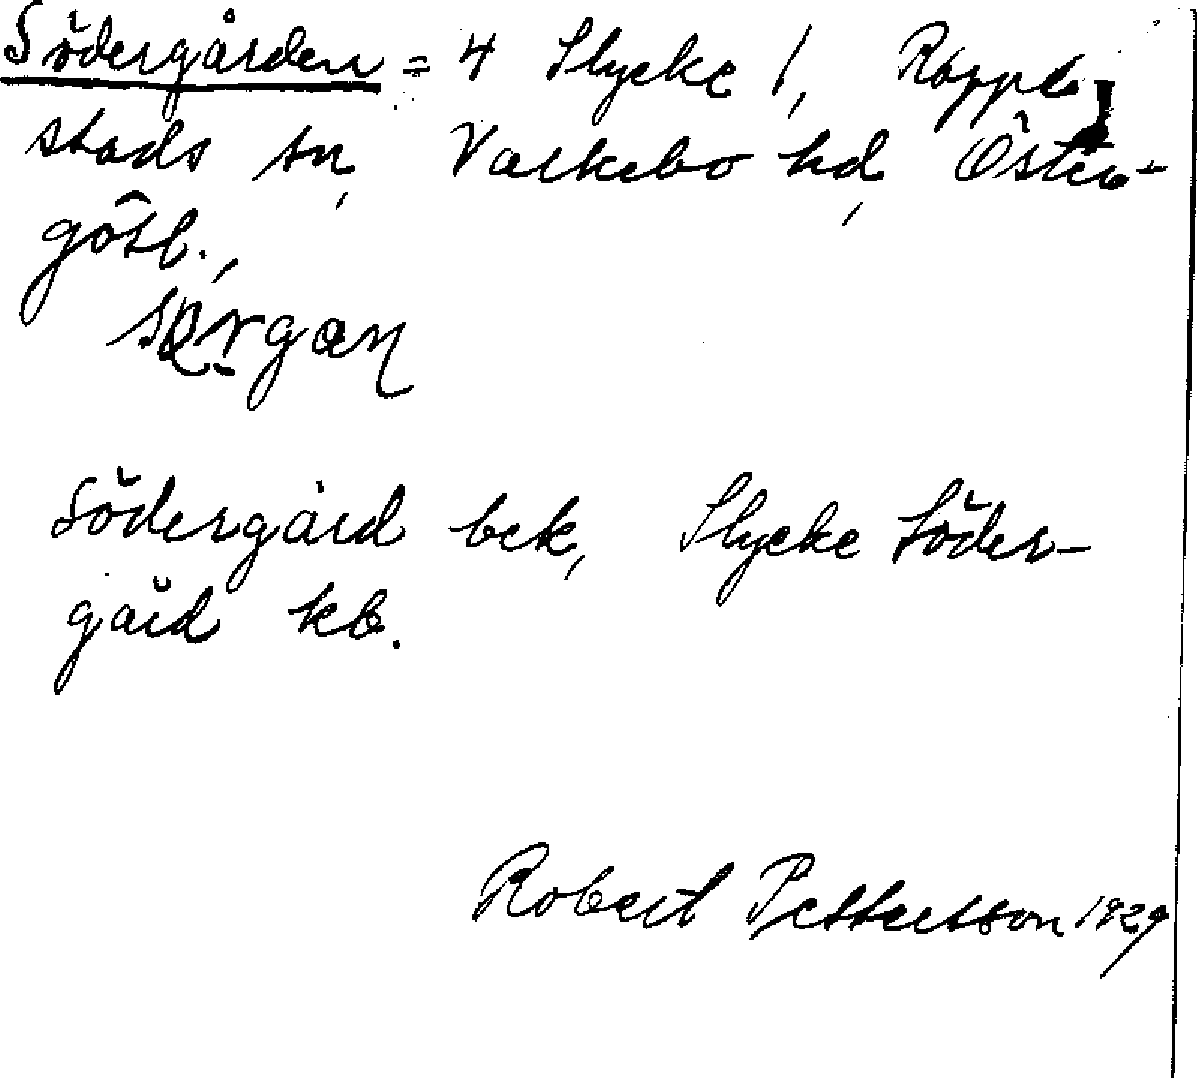 Södergården = 4 Slycke 1, Rappe-
stads sn, Valkebo hd, Öster-
götl.,
Södergård bek, Slycke Söder-
gård kb.
Robert Pettersson 1929